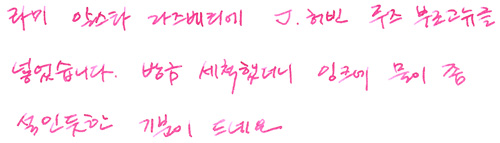 라미 알스타 라즈베리에 J.허빈 루즈 부르고뉴를
넣었습니다. 방금 세척했더니 잉크에 물이 좀
섞인듯한 기분이 드네요